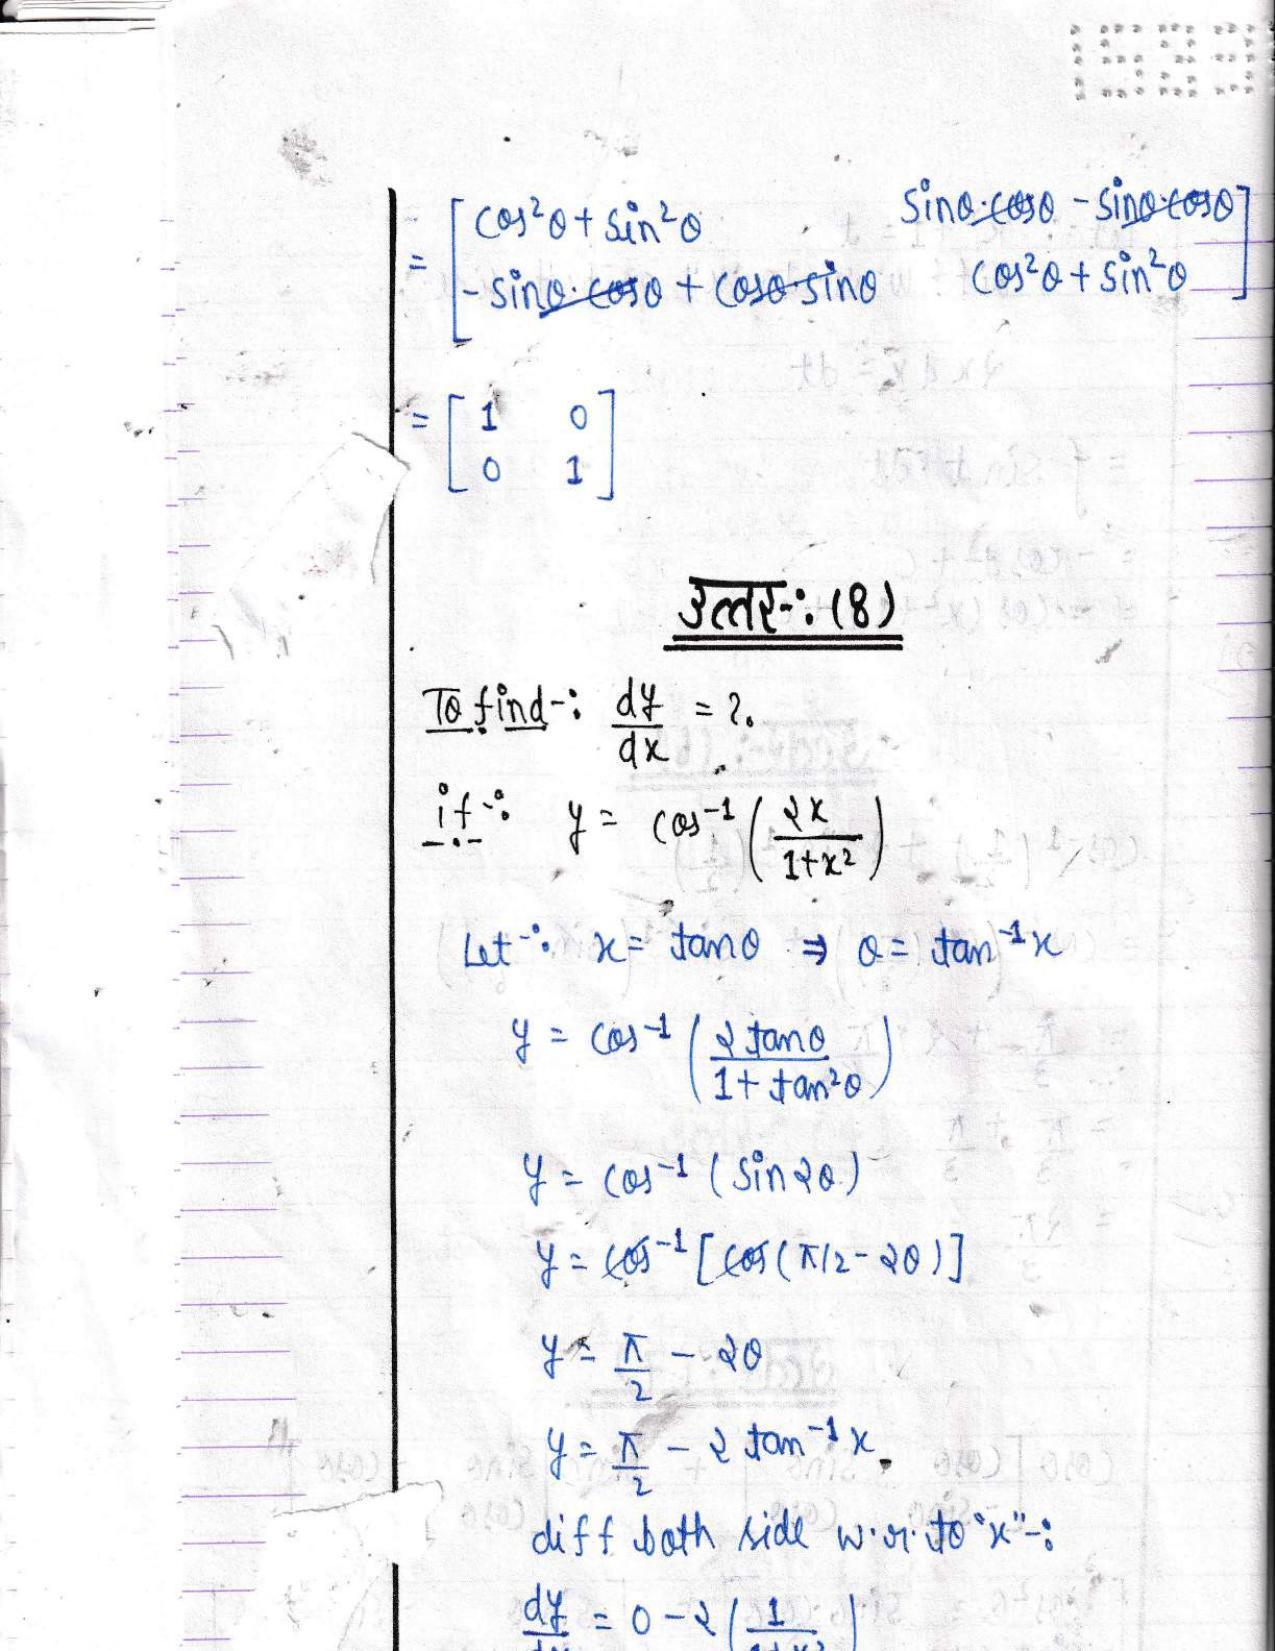 = [ cos²θ + sin²θ    sinθ·cosθ - sinθ·cosθ
-sinθ·cosθ + cosθ·sinθ    cos²θ + sin²θ ]
= [ 1 0
0 1 ]
उत्तर-: (8)
To find-: dy/dx = ?.
if-: y = cos⁻¹ ( 2x / 1+x² )
Let-: x = tanθ ⇒ θ = tan⁻¹x
y = cos⁻¹ ( 2 tanθ / 1 + tan²θ )
y = cos⁻¹ ( sin2θ )
y = cos⁻¹ [ cos ( π/2 - 2θ ) ]
y = π/2 - 2θ
y = π/2 - 2 tan⁻¹x.
diff both side w.r.to "x"-:
dy/dx = 0 - 2 ( 1 / 1+x² )